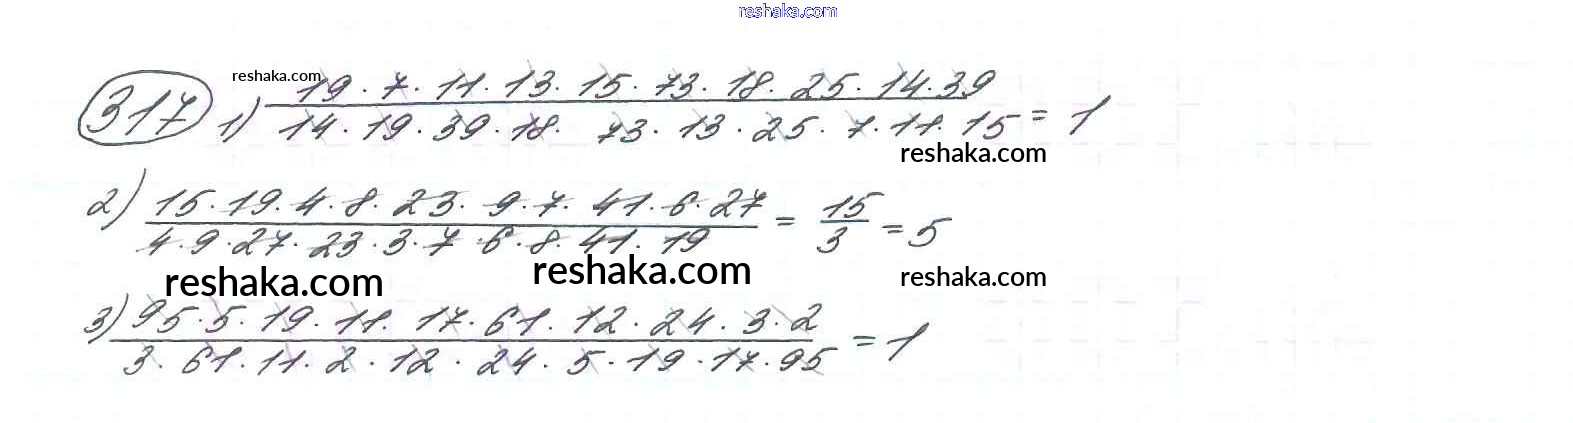 reshaka.com
reshaka.com
317 1) 19 · 7 · 11 · 13 · 15 · 73 · 18 · 25 · 14 · 39
14 · 19 · 39 · 18 · 73 · 13 · 25 · 7 · 11 · 15 = 1
reshaka.com
2) 15 · 19 · 4 · 8 · 23 · 9 · 7 · 41 · 6 · 27
4 · 9 · 27 · 23 · 3 · 7 · 6 · 8 · 41 · 19 = 15/3 = 5
reshaka.com reshaka.com reshaka.com
3) 95 · 5 · 19 · 11 · 17 · 61 · 12 · 24 · 3 · 2
3 · 61 · 11 · 2 · 12 · 24 · 5 · 19 · 17 · 95 = 1